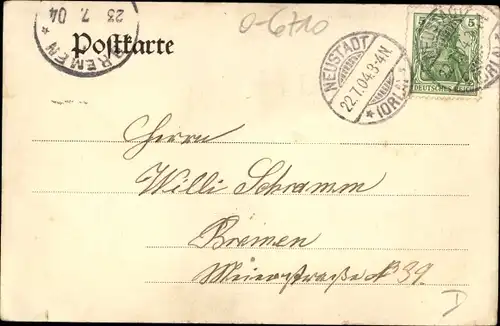 23.7.04
BREMEN
0-6710
Postkarte
NEUSTADT
22.7.04.3-4N
* (ORLA) *
5 5
DEUTSCHES REICH
Herrn
Willi Schramm
Bremen
Meierstraße № 39.
D